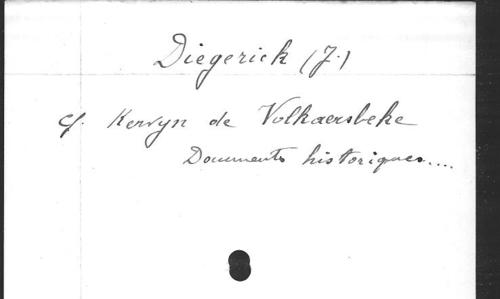 Diegerick (J.)
cf. Kervyn de Volkaersbeke
Documents historiques....